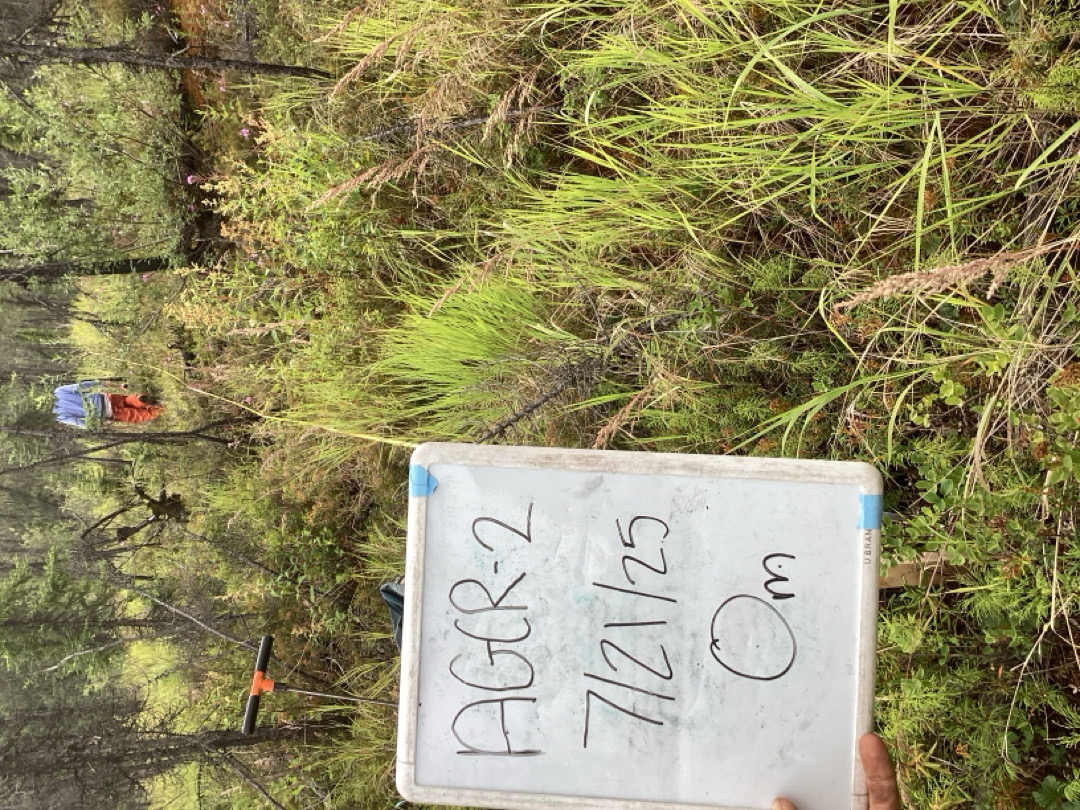 AGCR-2
7/21/25
0m
U BRAN